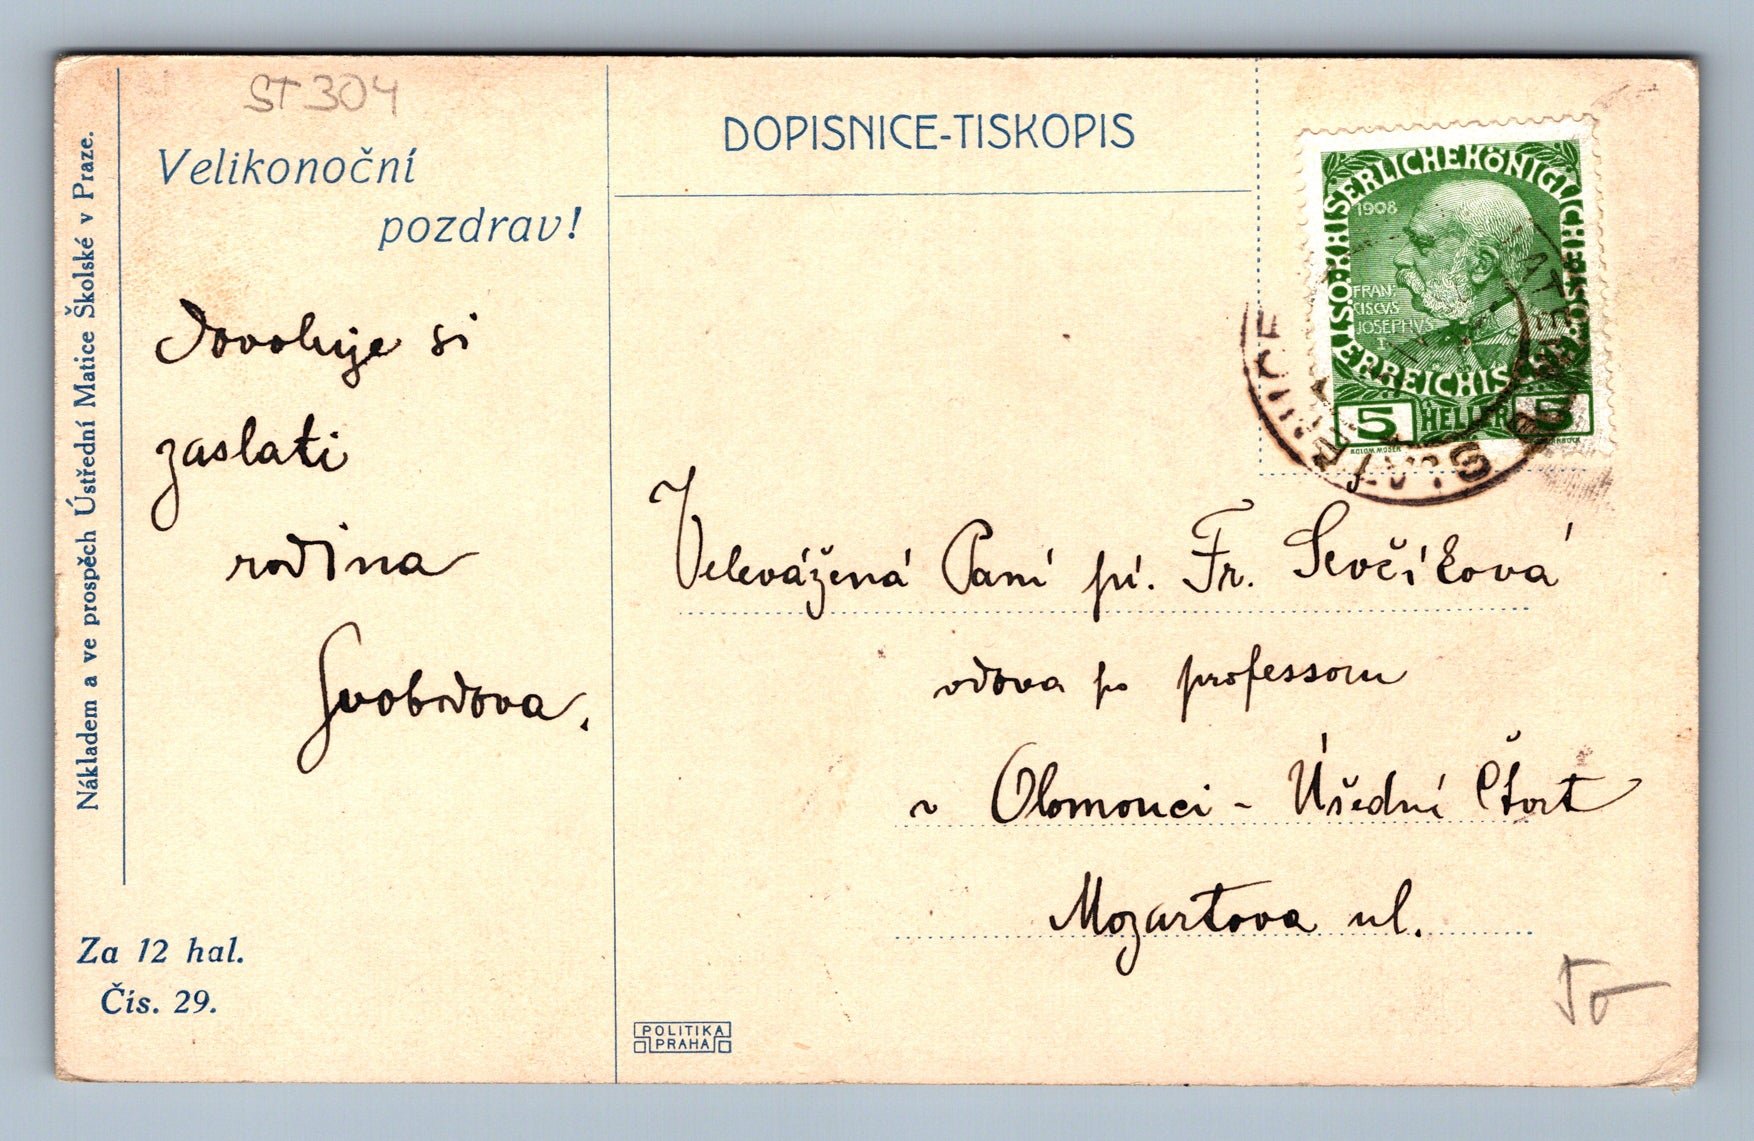 ST 304
Velikonoční
pozdrav!
dovoluje si
zaslati
rodina
Svobodova.
Nákladem a ve prospěch Ústřední Matice Školské v Praze.
Za 12 hal.
Čís. 29.
DOPISNICE-TISKOPIS
KAISERLICHE KÖNIGLICHE ÖSTERREICHISCHE POST
1908
FRAN
CISCVS
JOSEPHVS
I
5 HELLER 5
KOLOM. MOSER
Velevážená Paní pí. Fr. Ševčíková
vdova po professoru
v Olomouci - Úřední Čtvrt
Mozartova ul.
POLITIKA
PRAHA